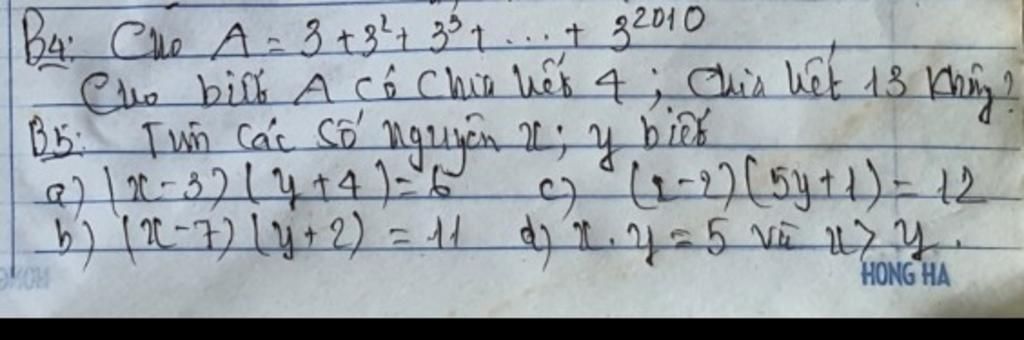 B4: Cho A = 3 + 3² + 3³ + ... + 3²⁰¹⁰
Cho biết A có chia hết 4; chia hết 13 không?
B5: Tìm các số nguyên x; y biết
a) (x-3)(y+4) = 6 c) (x-2)(5y+1) = 12
b) (x-7)(y+2) = 11 d) x.y = 5 và x > y.
HONG HA